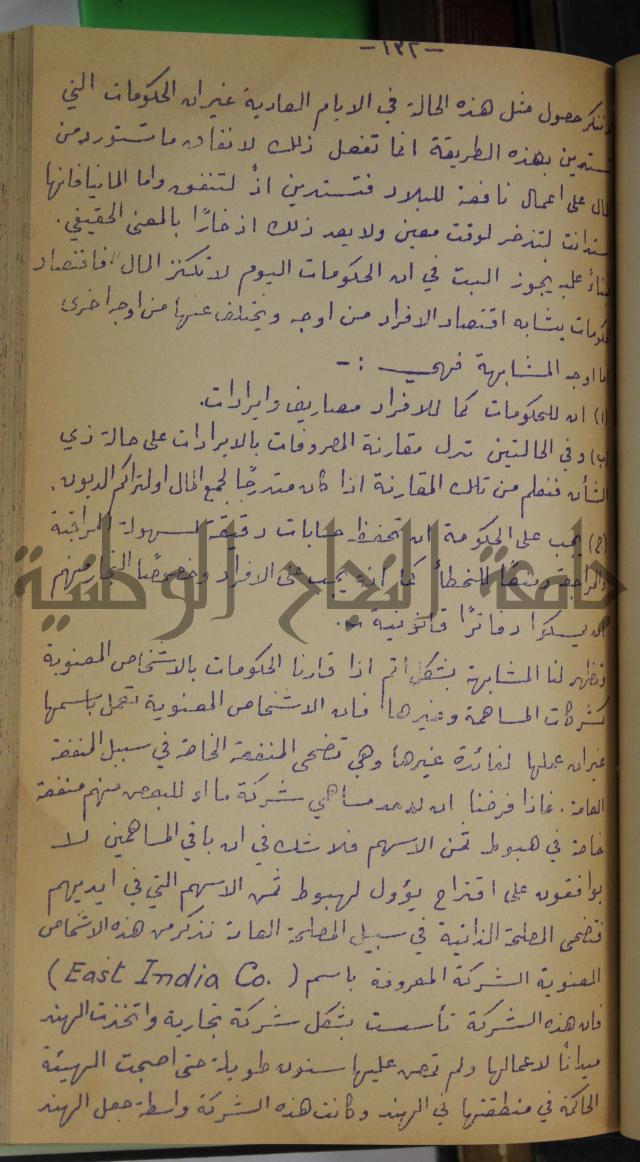 -١٣٢-
ننكر حصول مثل هذه الحالة في الايام العادية غير ان الحكومات التي
تستدين بهذه الطريقة انما تفعل ذلك لانفاق ما تستورده من
مال على اعمال نافعة للبلاد فتستدين اذاً لتنفق واما المانيا فانها
استدانت لتدخر لوقت معين ولا يعد ذلك اذخارًا بالمعنى الحقيقي.
بناءً عليه يجوز البت في ان الحكومات اليوم لا تكتنز المال. فاقتصاد
حكومات يشابه اقتصاد الافراد من اوجه ويختلف عنها من اوجه اخرى
اما اوجه المشابهة فهي :-
(١) ان للحكومات كما للافراد مصاريف وايرادات.
(ب) وفي الحالتين تدل مقارنة المصروفات بالايرادات على حالة ذي
الشأن فنعلم من تلك المقارنة اذا كان متدرجًا لجمع المال او لتراكم الديون.
(ج) يجب على الحكومة ان تحفظ حسابات دقيقة لسهولة المراقبة
والمراجعة ومنعًا للخطأ كما انه يجب على الافراد وخصوصًا التجار منهم
ان يمسكوا دفاترًا قانونية.
وتظهر لنا المشابهة بشكل اتم اذا قارنا الحكومات بالاشخاص المعنوية
كشركات المساهمة وغيرها فان الاشخاص المعنوية تعمل باسمها
غير ان عملها لفائدة غيرها وهي تضحي المنفعة الخاصة في سبيل المنفعة
العامة. فاذا فرضنا ان لاحد مساهمي شركة ما او للبعض منهم منفعة
خاصة في هبوط ثمن الاسهم فلا شك في ان باقي المساهمين لا
يوافقون على اقتراح يؤول لهبوط ثمن الاسهم التي في ايديهم
فتضحى المصلحة الذاتية في سبيل المصلحة العامة نذكر من هذه الاشخاص
المعنوية الشركة المعروفة باسم (East India Co.)
فان هذه الشركة تأسست بشكل شركة تجارية واتخذت الهند
ميدانًا لاعمالها ولم تمض عليها سنون طويلة حتى اصبحت الهيئة
الحاكمة في منطقتها في الهند وكانت هذه الشركة واسطة جعل الهند
جامعة النجاح الوطنية